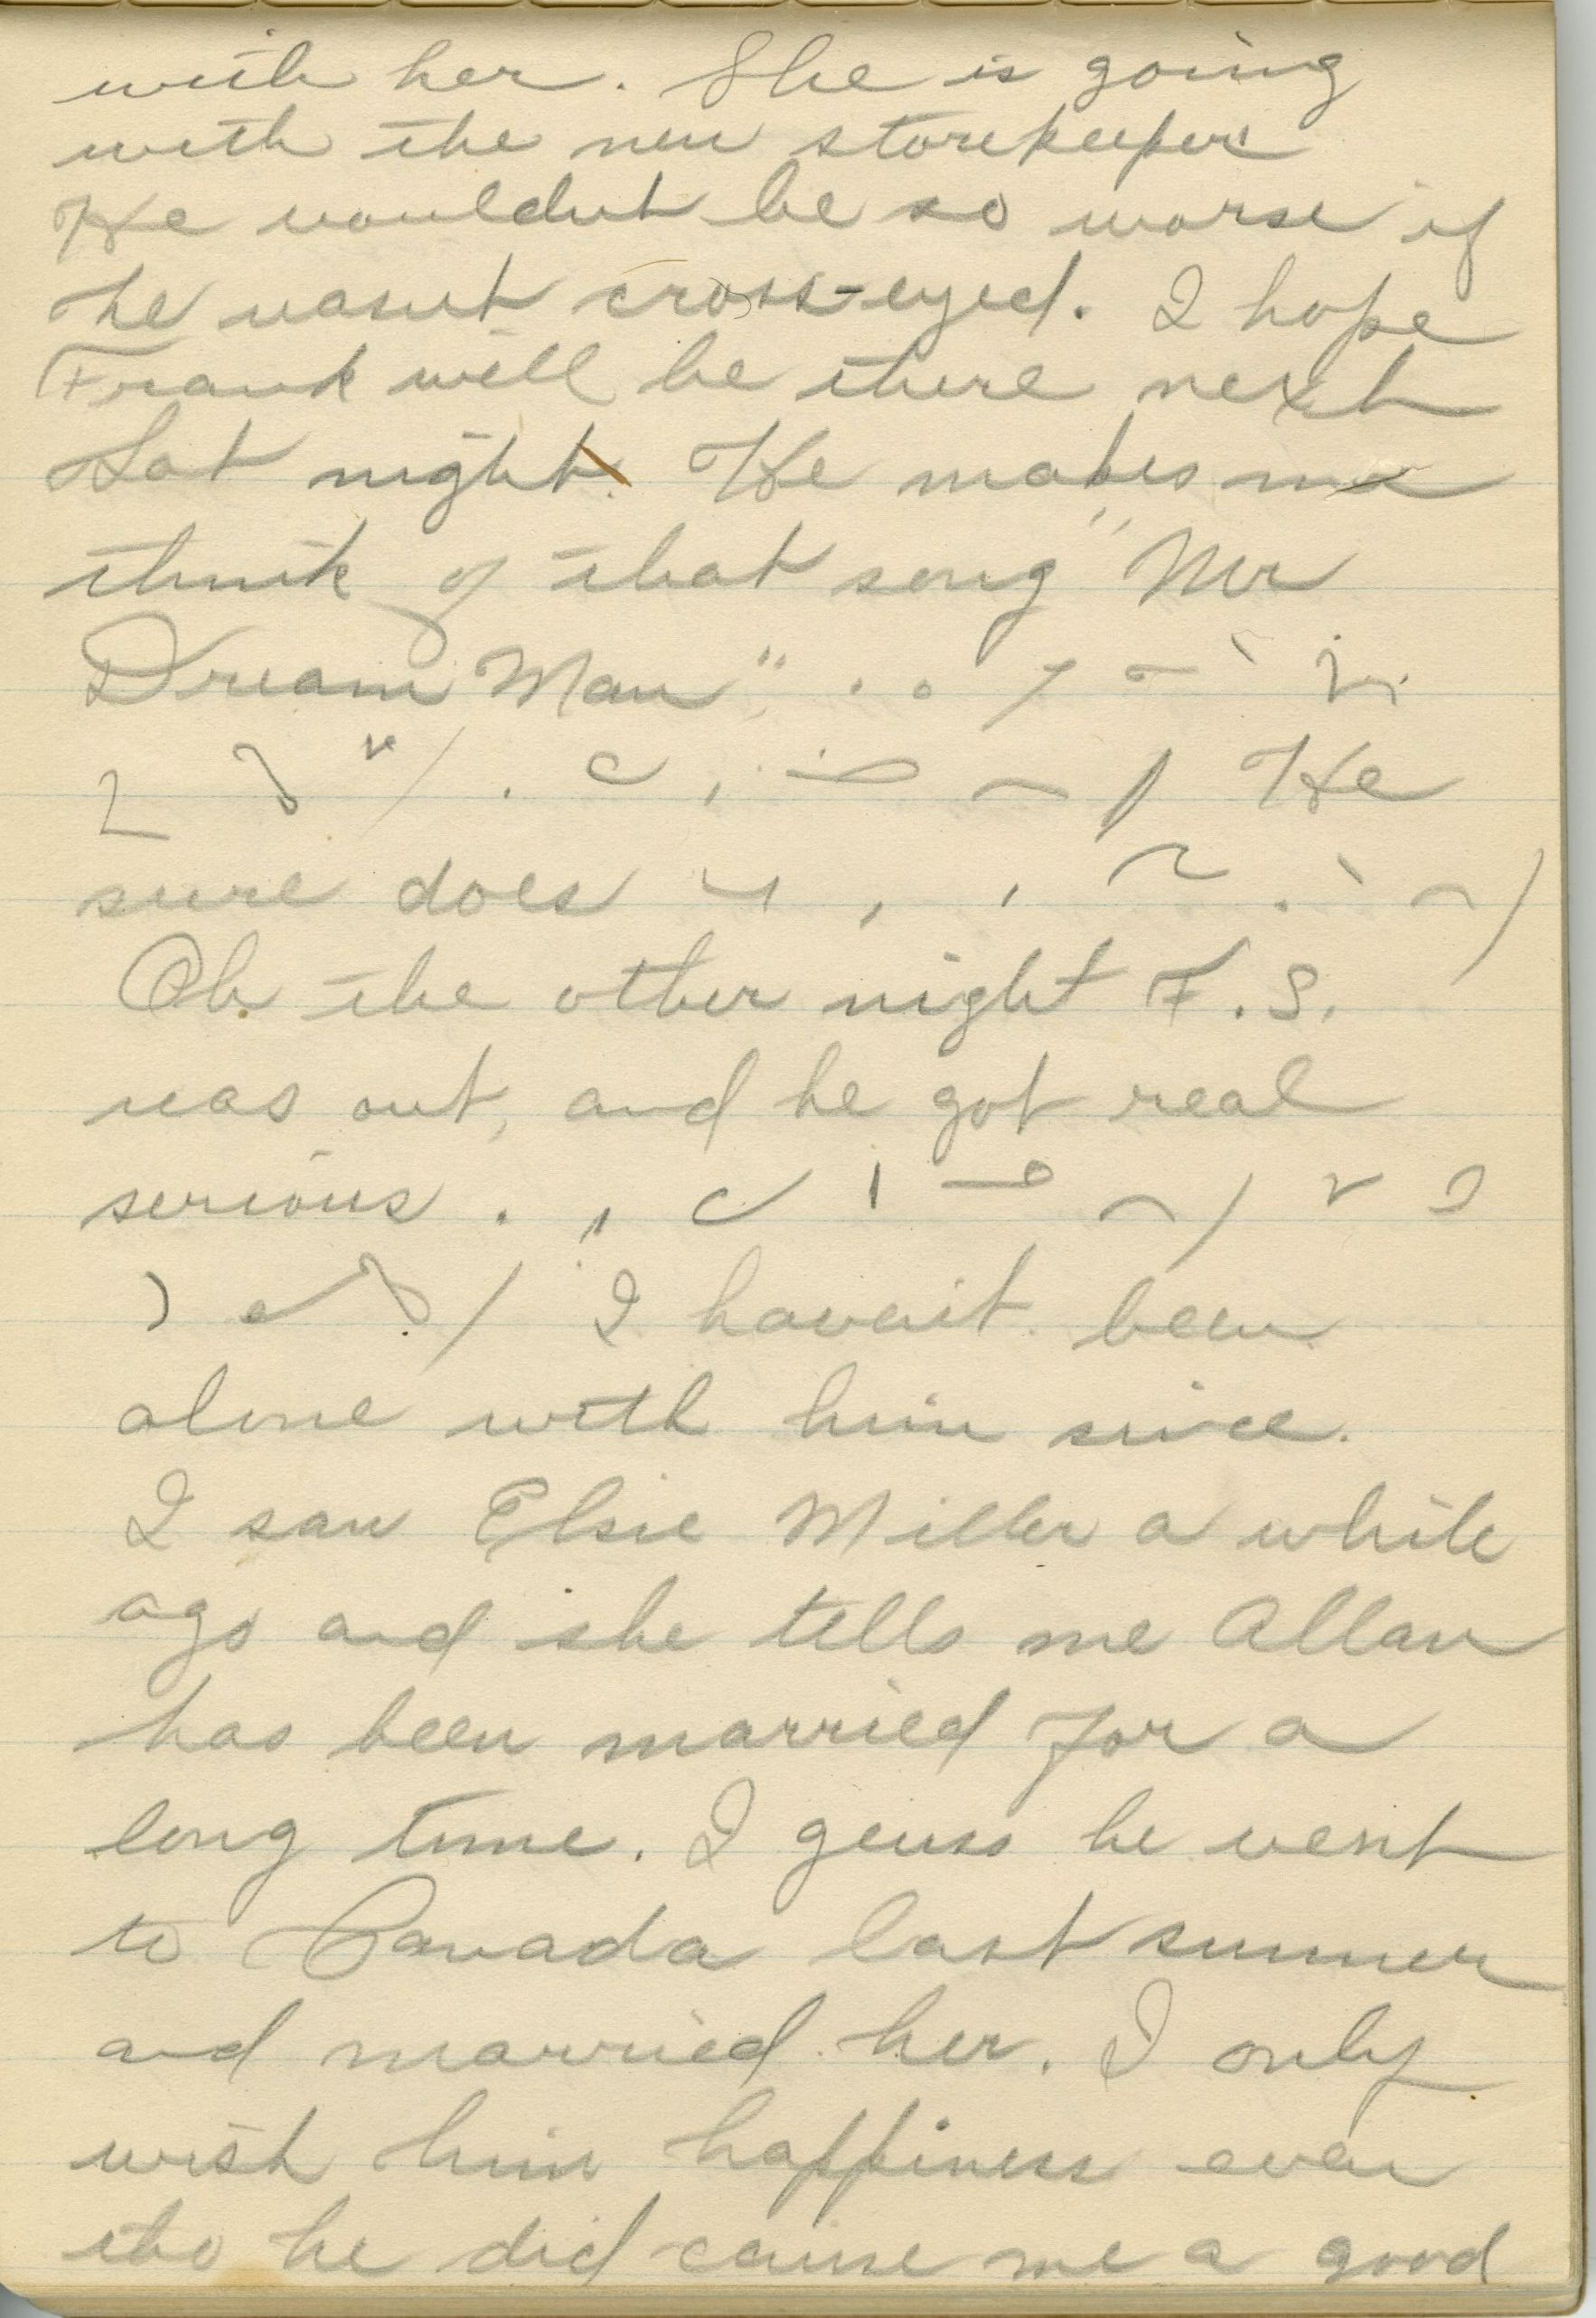 with her. She is going
with the new storekeeper
He wouldnt be so worse if
he wasnt cross-eyed. I hope
Frank will be there next
Sat night. He makes me
think of that song "Mr
Dream Man"
He
sure does
Oh the other night F. S.
was out, and he got real
serious.
I havent been
alone with him since.
I saw Elsie Miller a while
ago and she tells me Allan
has been married for a
long time. I geuss he went
to Canada last summer
and married her. I only
wish him happiness even
tho he did cause me a good